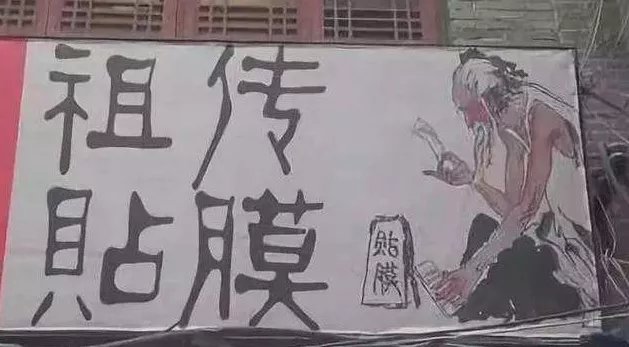 祖传
貼膜
貼膜